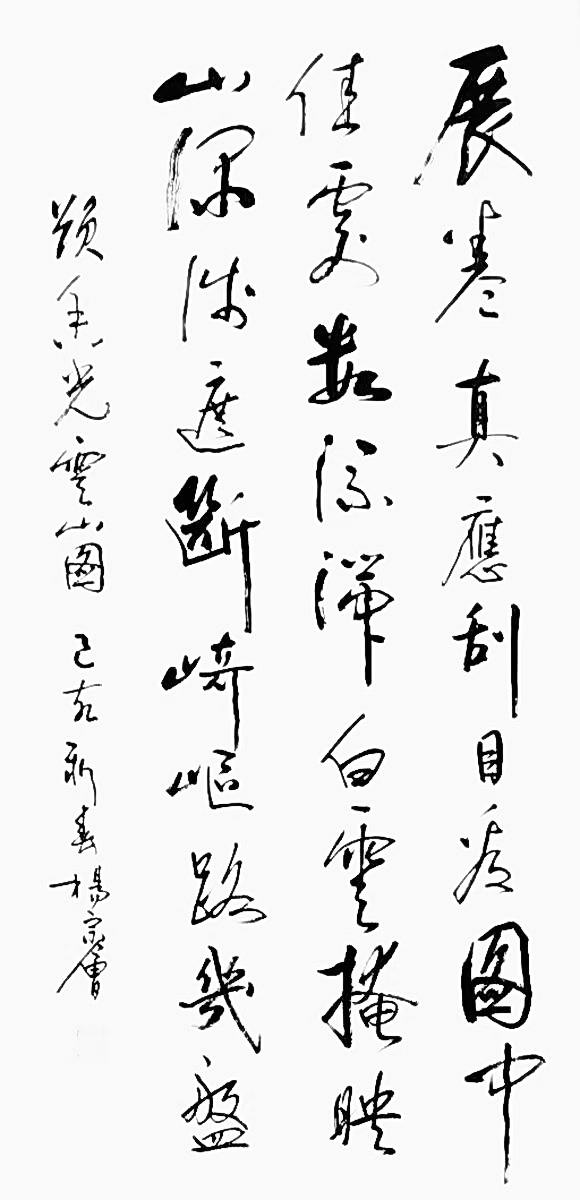 展卷真應刮目看圖中
佳處數白雲掩映
山深淺遮斷崎嶇路幾盤
題香光雲山圖 己亥新春楊宗會